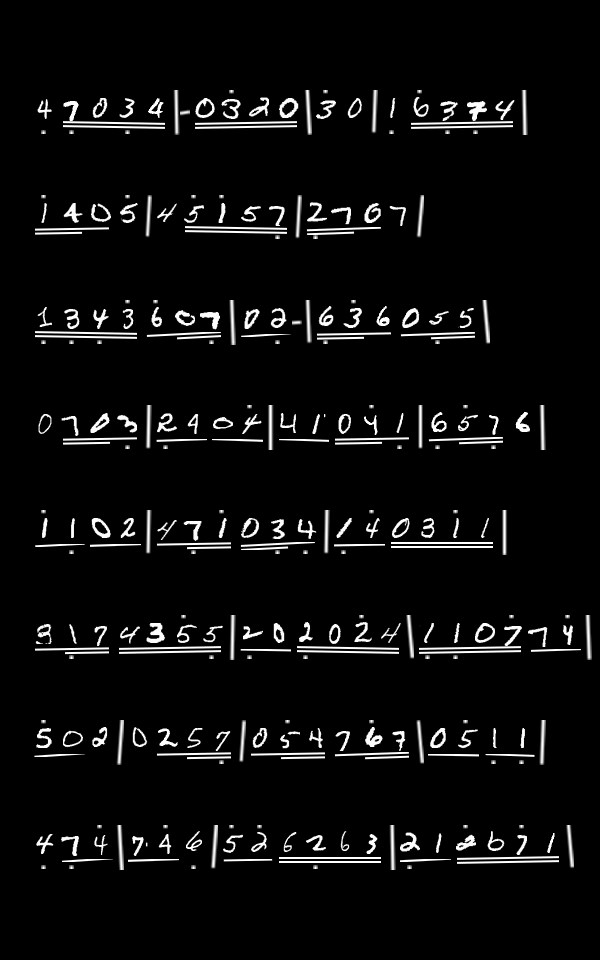 47034|-0320|30|16374|
1405|45157|2707|
1343607|02-|636055|
0703|2404|41041|6576|
1102|471034|140311|
3174355|202024|110774|
502|0257|054767|0511|
474|746|526263|212671|